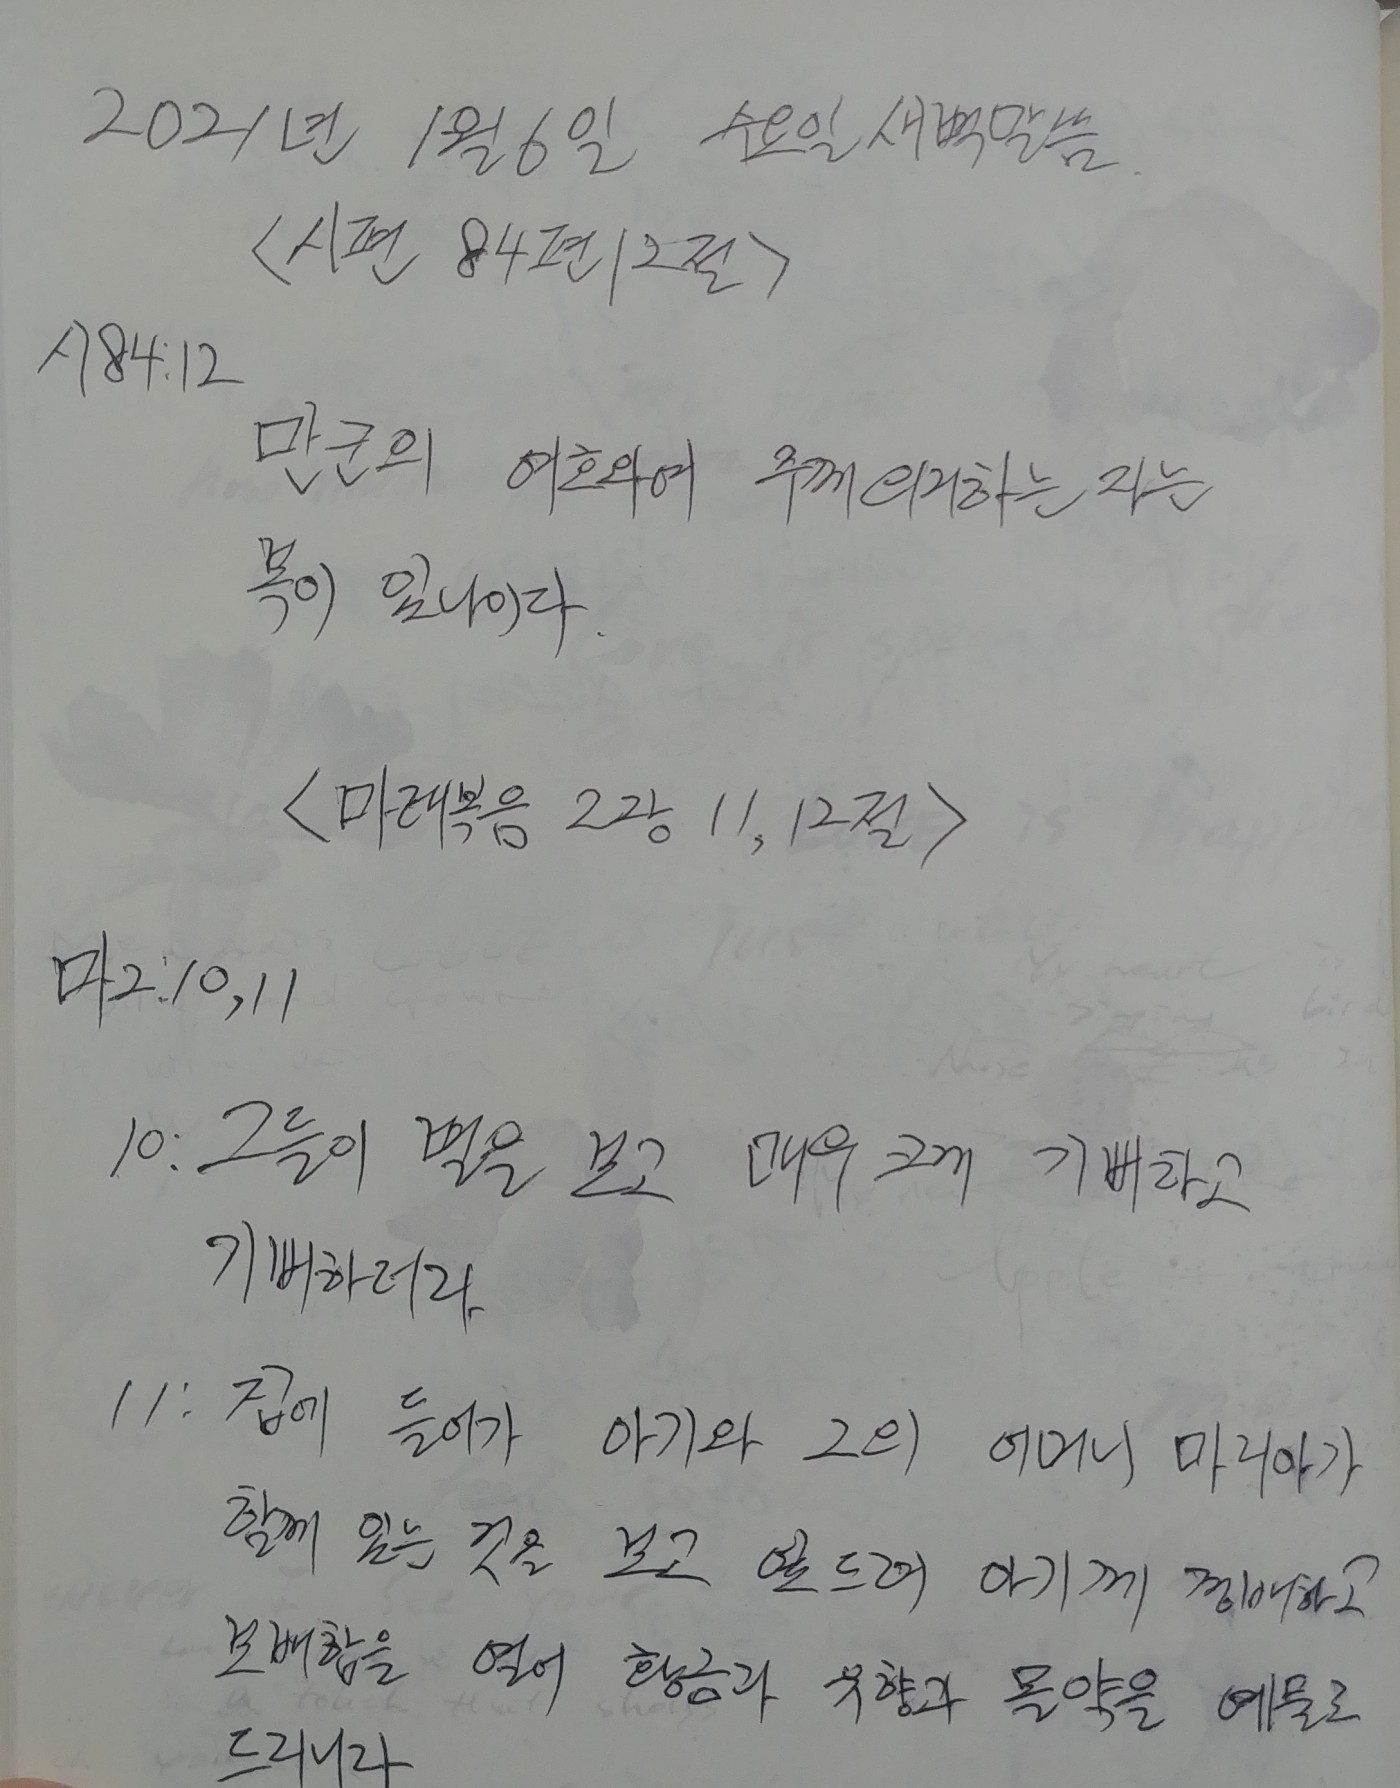 2021년 1월 6일 수요일 새벽말씀.
<시편 84편 12절>
시84:12
만군의 여호와여 주께 의지하는 자는
복이 있나이다.
<마태복음 2장 11, 12절>
마2:10,11
10: 그들이 별을 보고 매우 크게 기뻐하고
기뻐하더라.
11: 집에 들어가 아기와 그의 어머니 마리아가
함께 있는 것을 보고 엎드려 아기께 경배하고
보배합을 열어 황금과 유향과 몰약을 예물로
드리니라